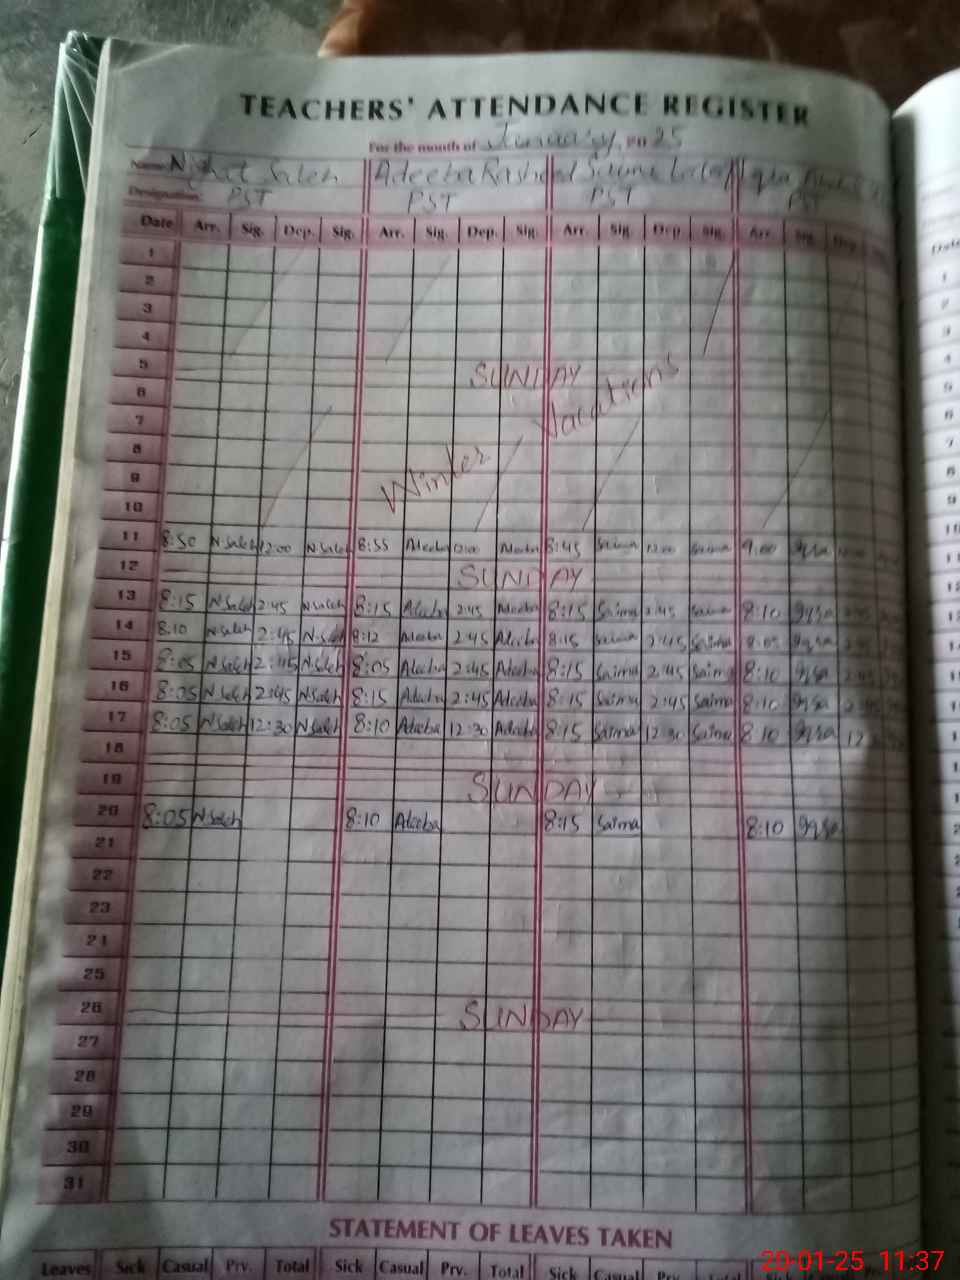 TEACHERS' ATTENDANCE REGISTER
For the month of January, 20 25
Name Nighat Saleh Adeeba Rasheed Saima
Designation PST PST PST PST
Date Arr. Sig. Dep. Sig. Arr. Sig. Dep. Sig. Arr. Sig. Dep. Sig. Arr. Sig. Dep.
1
2
3
4
5 SUNDAY
6
7
8 Winter Vacations
9
10
11 8:50 N.Saleh 12:00 N.Saleh 8:55 Adeeba 12:00 Adeeba 8:45 Saima 12:00 Saima 9:00 Iqra
12 SUNDAY
13 8:15 N.Saleh 2:45 N.Saleh 8:15 Adeeba 2:45 Adeeba 8:15 Saima 2:45 Saima 8:10 Iqra 2:45
14 8:10 N.Saleh 2:45 N.Saleh 8:12 Adeeba 2:45 Adeeba 8:15 Saima 2:45 Saima 8:05 Iqra
15 8:05 N.Saleh 2:45 N.Saleh 8:05 Adeeba 2:45 Adeeba 8:15 Saima 2:45 Saima 8:10 Iqra 2:45
16 8:05 N.Saleh 2:45 N.Saleh 8:15 Adeeba 2:45 Adeeba 8:15 Saima 2:45 Saima 8:10 Iqra 2:45
17 8:05 N.Saleh 12:30 N.Saleh 8:10 Adeeba 12:30 Adeeba 8:15 Saima 12:30 Saima 8:10 Iqra
18
19 SUNDAY
20 8:05 N.Saleh 8:10 Adeeba 8:15 Saima 8:10 Iqra
21
22
23
24
25
26 SUNDAY
27
28
29
30
31
STATEMENT OF LEAVES TAKEN
Leaves Sick Casual Prv. Total Sick Casual Prv. Total Sick Casual Prv.
20-01-25 11:37